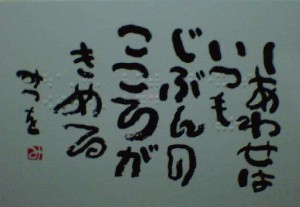 しあわせは
いつも
じぶんの
こころが
きめる
みつを